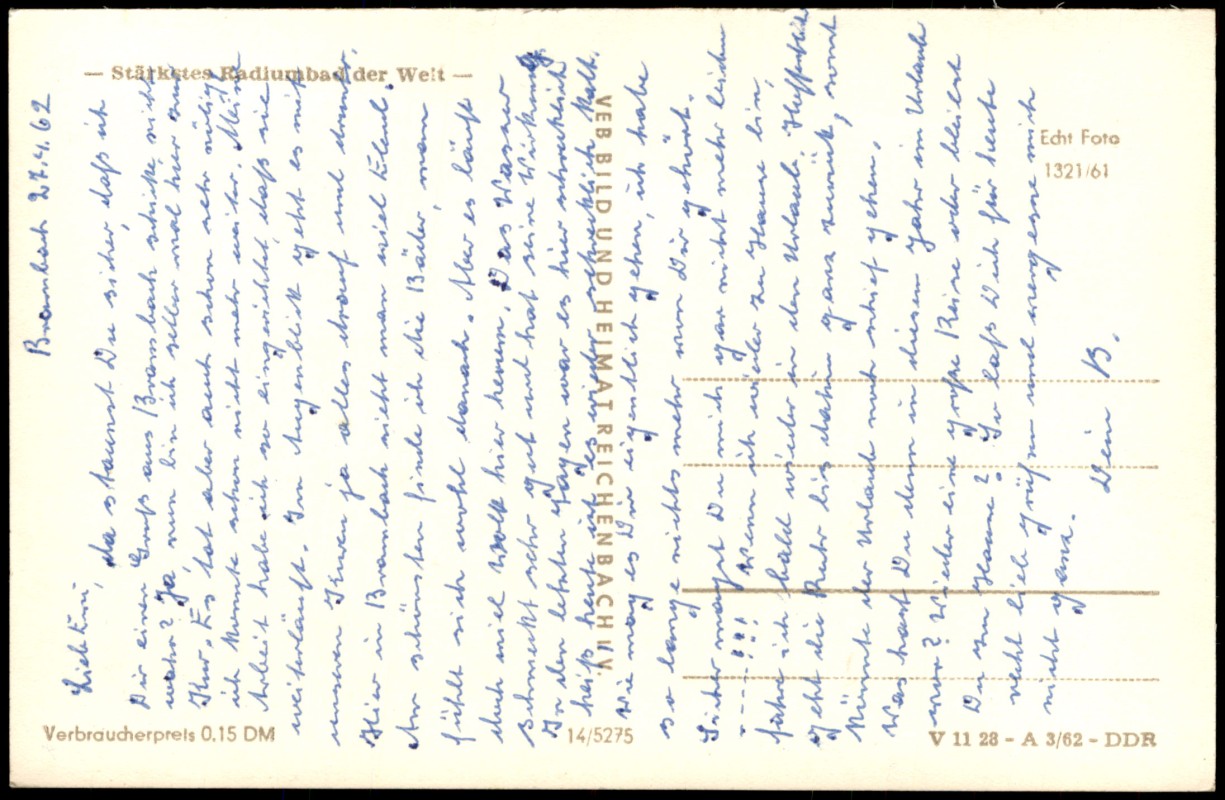 — Stärkstes Radiumbad der Welt —
Echt Foto
1321/61
VEB BILD UND HEIMAT REICHENBACH I.V.
Verbraucherpreis 0,15 DM
14/5275
V 11 28 – A 3/62 – DDR
Brambach 27.4.62
Liebe
da staunst Du sicher, daß ich
Dir einen Gruß aus Brambach schicke, nicht
wahr? Ja, nun bin ich selber mal hier zur
Kur. Es tat aber auch schon sehr nötig,
ich konnte schon nicht mehr weiter. Meine
Arbeit habe ich so eingerichtet, daß sie
weiterläuft. Im Augenblick geht es mit
unseren ja alles drauf und drunter.
Hier in Brambach sieht man viel Elend.
Am schönsten finde ich die Bäder, man
fühlt sich wohl danach. Aber es läuft
auch viel Volk hier herum. Das Wasser
schmeckt sehr gut und hat seine Wirkung.
In den letzten Tagen war es hier schrecklich
heiß, heute ist es wieder schrecklich kalt.
Wie mag es Dir eigentlich gehen, ich habe
so lange nichts mehr von Dir gehört.
Sicher magst Du mich gar nicht mehr leiden
-----!!! Wenn ich wieder zu Hause bin,
fahre ich bald wieder in den Urlaub. Hoffentlich
geht die Ruhr bis dahin ganz zurück, sonst
könnte der Urlaub noch schief gehen.
Was hast Du denn in diesem Jahr im Urlaub
vor? Wieder eine große Reise oder bleibst
Du zu Hause? So laß Dich für heute
recht lieb grüßen und vergesse mich
nicht ganz.
Dein B.